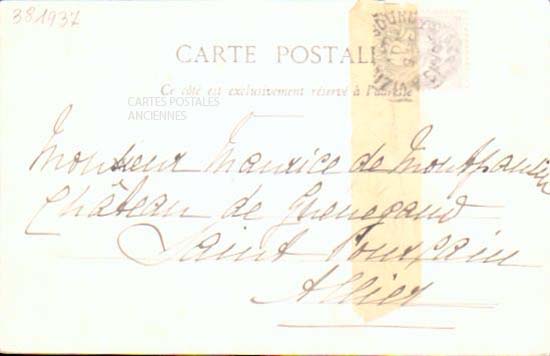 381937
CARTE POSTALE
Ce côté est exclusivement réservé à l'adresse
CARTES POSTALES
ANCIENNES
Monsieur Maurice de Montpansin
Château de Guenegaud
Saint Pourçain
Allier